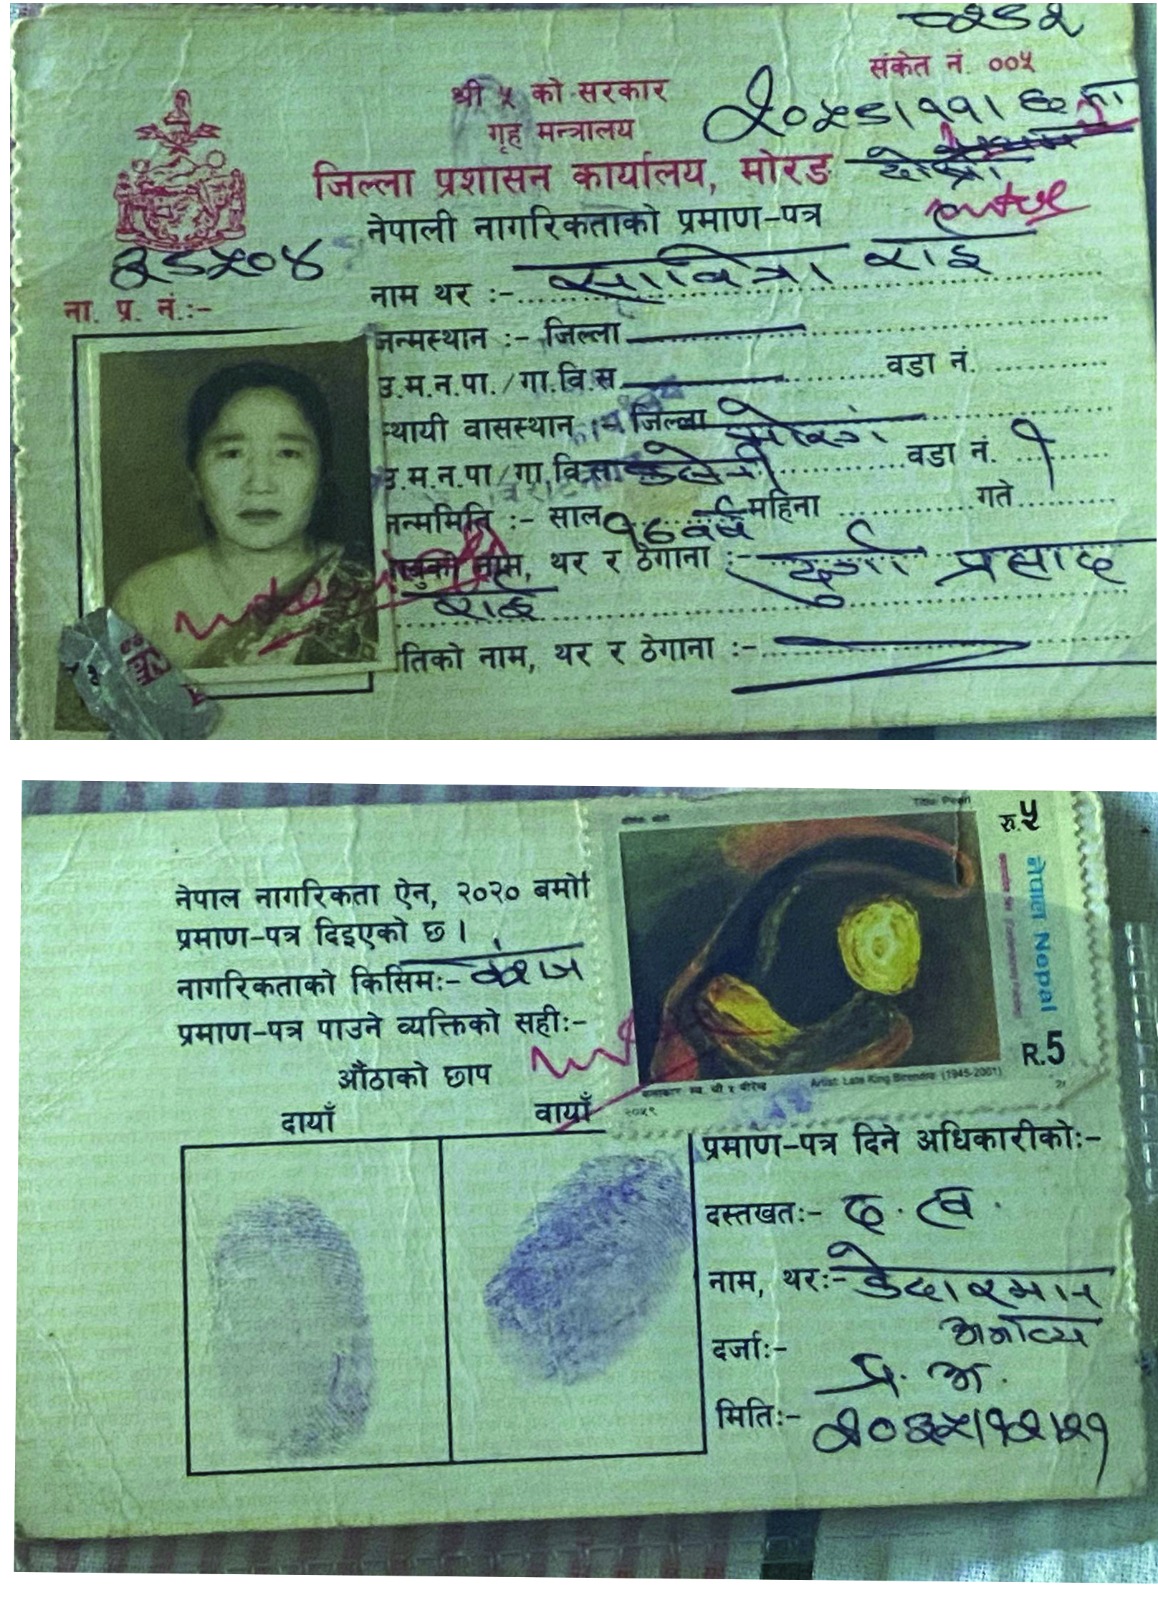 संकेत नं. ००५
श्री ५ को सरकार
गृह मन्त्रालय
जिल्ला प्रशासन कार्यालय, मोरङ
नेपाली नागरिकताको प्रमाण-पत्र
ना. प्र. नं.:-
नाम थर :- सावित्रा राई
जन्मस्थान :- जिल्ला
उ.म.न.पा./गा.वि.स. वडा नं.
स्थायी वासस्थान :- जिल्ला मोरंग
उ.म.न.पा/गा.वि.स. वडा नं. १
जन्ममिति :- साल १६ वर्ष महिना गते
नाम, थर र ठेगाना :- दुर्गा प्रसाद
राई
तिको नाम, थर र ठेगाना :-
Title: Pearl
रु.५
नेपाल Nepal
नेपाल नागरिकता ऐन, २०२० बमो
प्रमाण-पत्र दिइएको छ।
नागरिकताको किसिम:- वंशज
प्रमाण-पत्र पाउने व्यक्तिको सही:-
R.5
Artist: Late King Birendra (1945-2001)
औंठाको छाप
दायाँ वायाँ
प्रमाण-पत्र दिने अधिकारीको:-
दस्तखत:- द. ख.
नाम, थर:- केदारमान
दर्जा:-
प्र. अ.
मिति:- २०३५।१२।२१